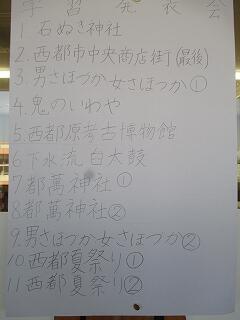 学習発表会
1 石ぬき神社
2.西都市中央商店街(最後)
3.男さほつか女さほつか①
4.鬼のいわや
5.西都原考古博物館
6 下水流臼太鼓
7都萬神社①
8都萬神社②
9.男さほつか女さほつか②
10.西都夏祭り①
11西都夏祭り②